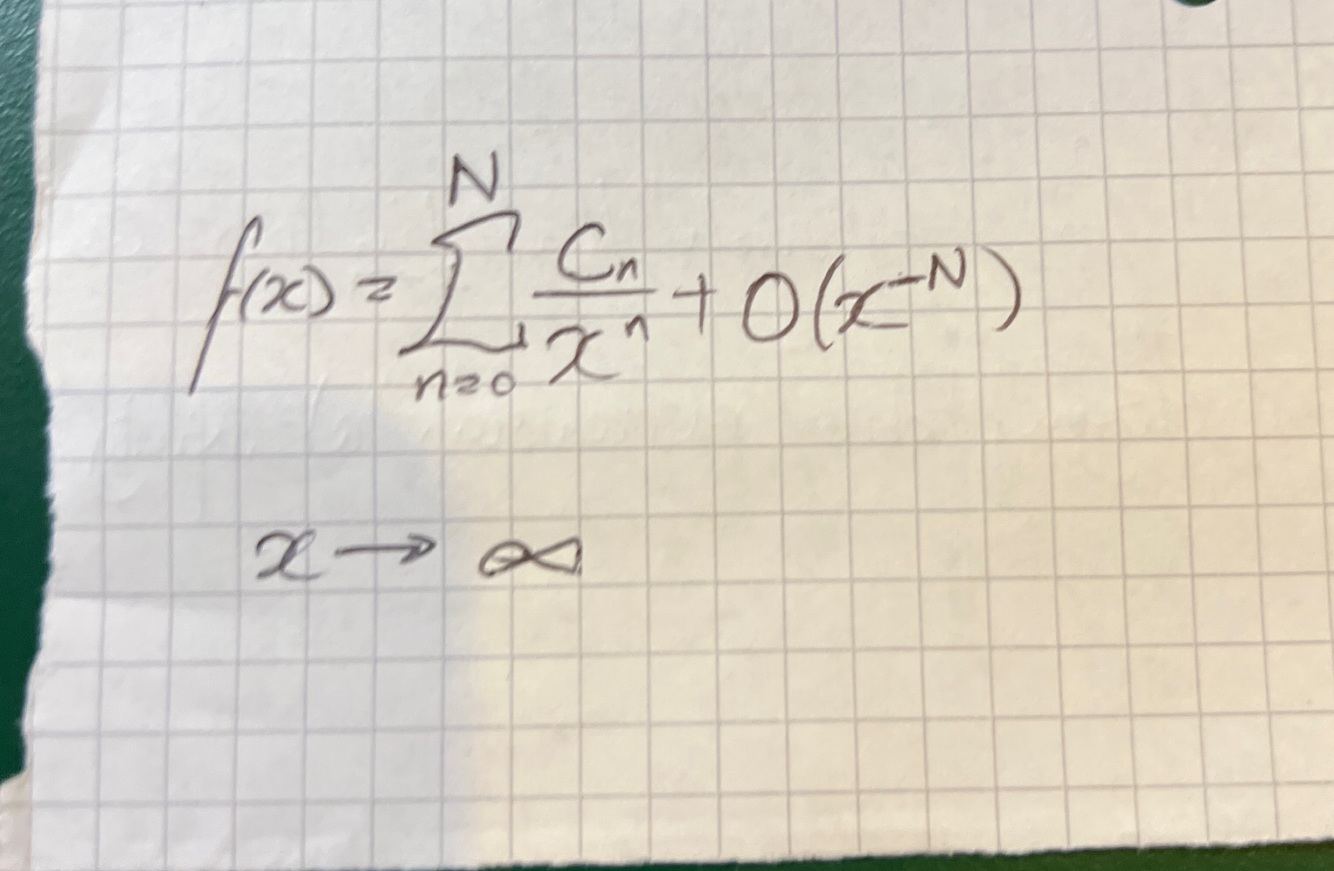 f(x) = \sum_{n=0}^{N} \frac{C_n}{x^n} + O(x^{-N})
x → ∞